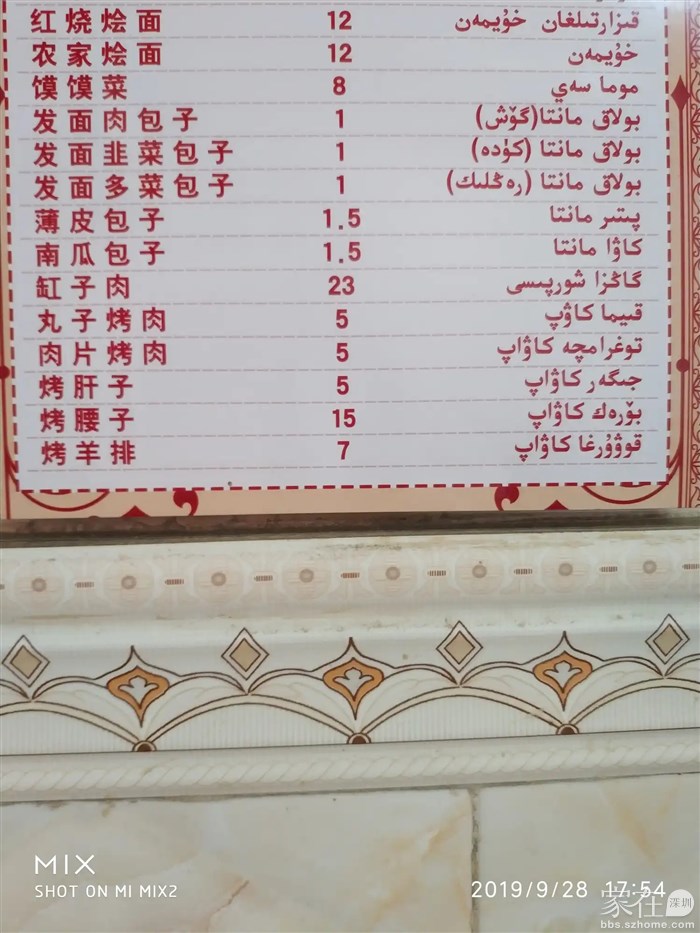 红烧烩面 12 قىزارتىلغان خۇيمەن
农家烩面 12 خۇيمەن
馍馍菜 8 موما سەي
发面肉包子 1 بولاق مانتا(گۆش)
发面韭菜包子 1 بولاق مانتا (كۈدە)
发面多菜包子 1 بولاق مانتا (رەڭلىك)
薄皮包子 1.5 پىتىر مانتا
南瓜包子 1.5 كاۋا مانتا
缸子肉 23 گاڭزا شورپىسى
丸子烤肉 5 قىيما كاۋپ
肉片烤肉 5 توغرامچە كاۋاپ
烤肝子 5 جىگەر كاۋاپ
烤腰子 15 بۆرەك كاۋاپ
烤羊排 7 قوۋۇرغا كاۋاپ
MIX
SHOT ON MI MIX2
2019/9/28 17:54
家在深圳
bbs.szhome.com